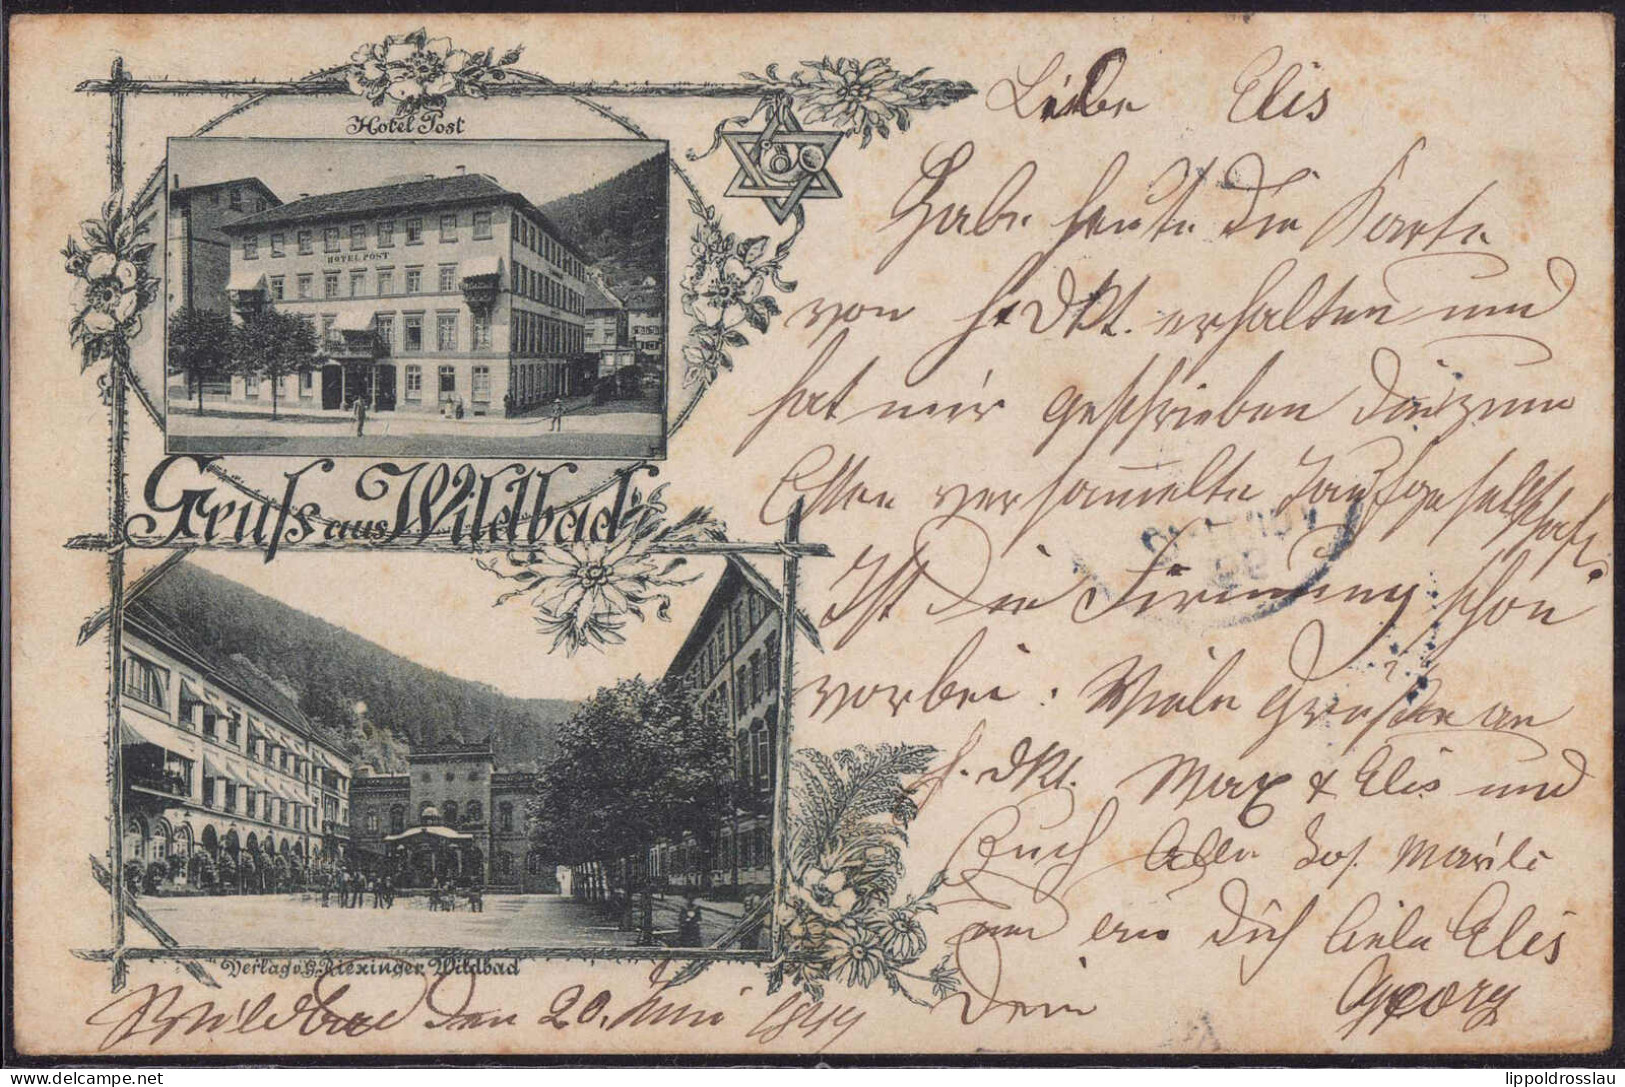 Hotel Post
HOTEL POST
Gruss aus Wildbad
Verlag v. G. Riexinger, Wildbad
Liebe Elis
Habe heute die Karte
von H. Dkt. erhalten und
hat mir geschrieben die zum
Essen versammelte
Ist die Firmung schon
vorbei. Viele Grüße an
H. Dkt. Max & Elis und
Euch Allen Jos. Marile
und Dich liebe Elis
Dein Georg
Wildbad den 20. Juni 1899
lippoldrosslau